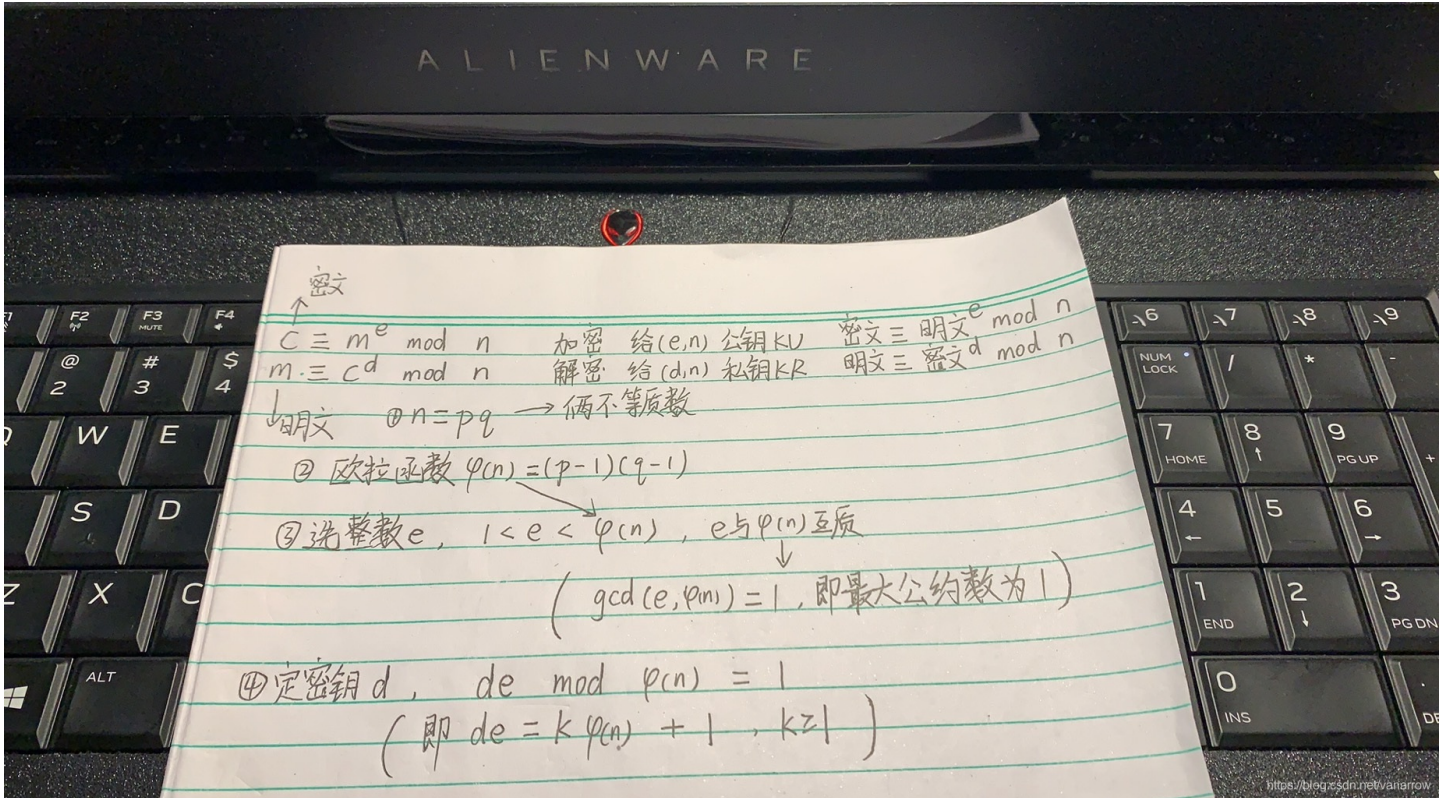 ALIENWARE
密文
C ≡ m^e mod n 加密 给(e,n) 公钥KU 密文≡明文^e mod n
m ≡ c^d mod n 解密 给(d,n) 私钥KR 明文≡密文^d mod n
明文 ① n=pq → 俩不等质数
② 欧拉函数 φ(n)=(p-1)(q-1)
③ 选整数e, 1<e<φ(n), e与φ(n)互质
(gcd(e,φ(n))=1,即最大公约数为1)
④ 定密钥d, de mod φ(n) = 1
(即 de = kφ(n) + 1, k≥1)
F1 F2 F3 MUTE F4
@ 2 # 3 $ 4
Q W E
S D
Z X C
ALT
6 7 8 9
NUM LOCK / * -
7 HOME 8 ↑ 9 PG UP +
4 ← 5 6 →
1 END 2 ↓ 3 PG DN
0 INS . DE
https://blog.csdn.net/vanarrow